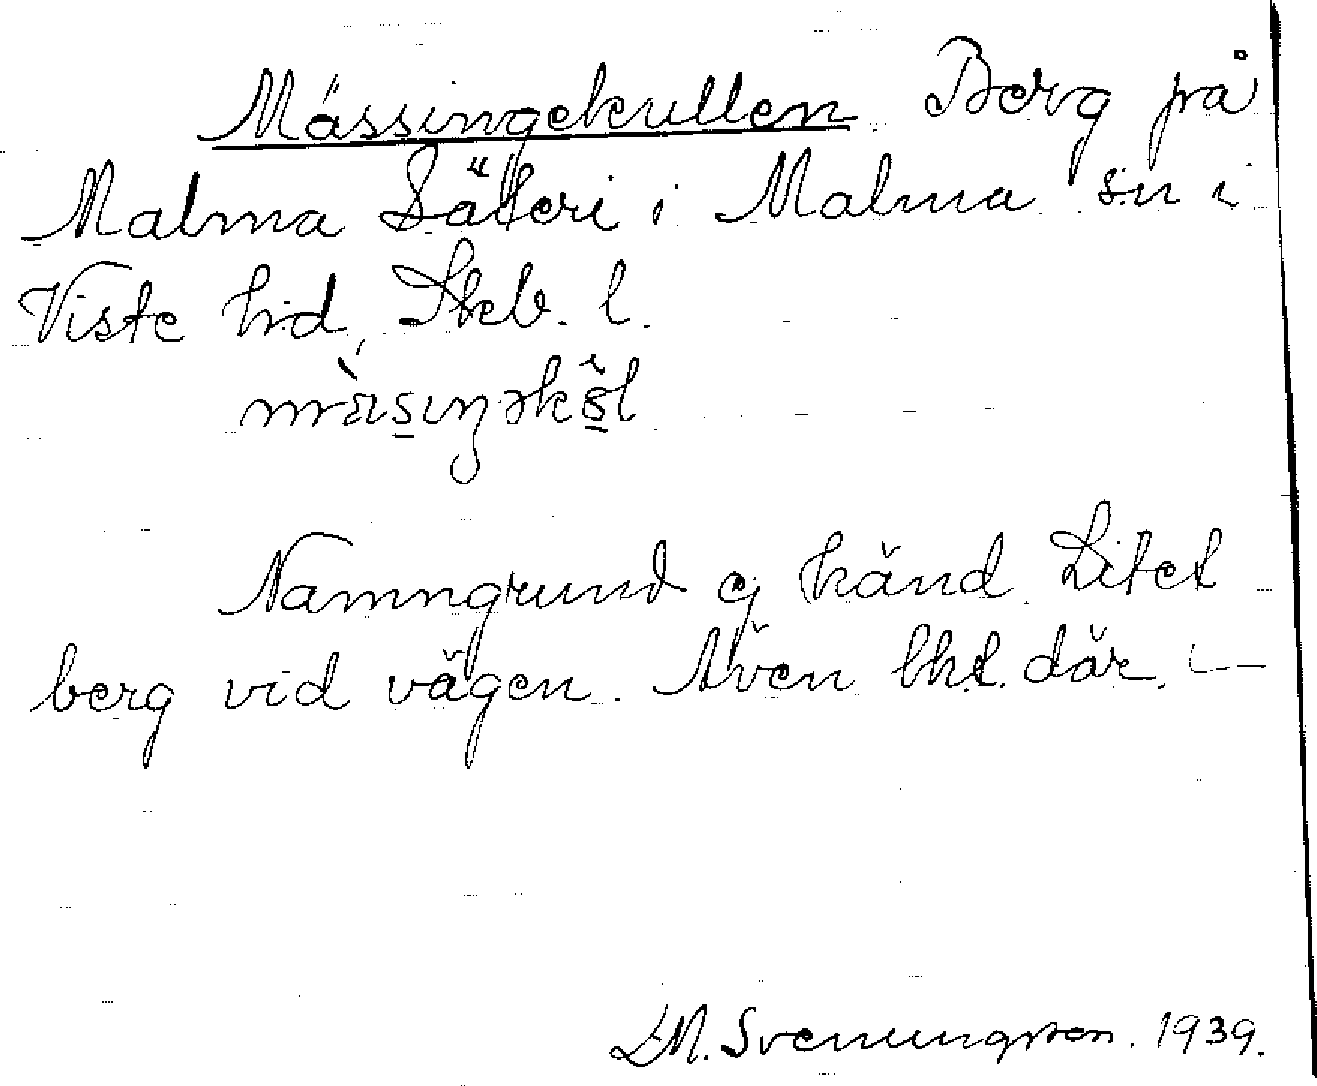 Mässingekullen Berg på
Malma Säteri i Malma sn i
Viste hd, Skb. l.
Namngrund ej känd. Litet
berg vid vägen. Även bht. där. —
LM. Svenungsson. 1939.